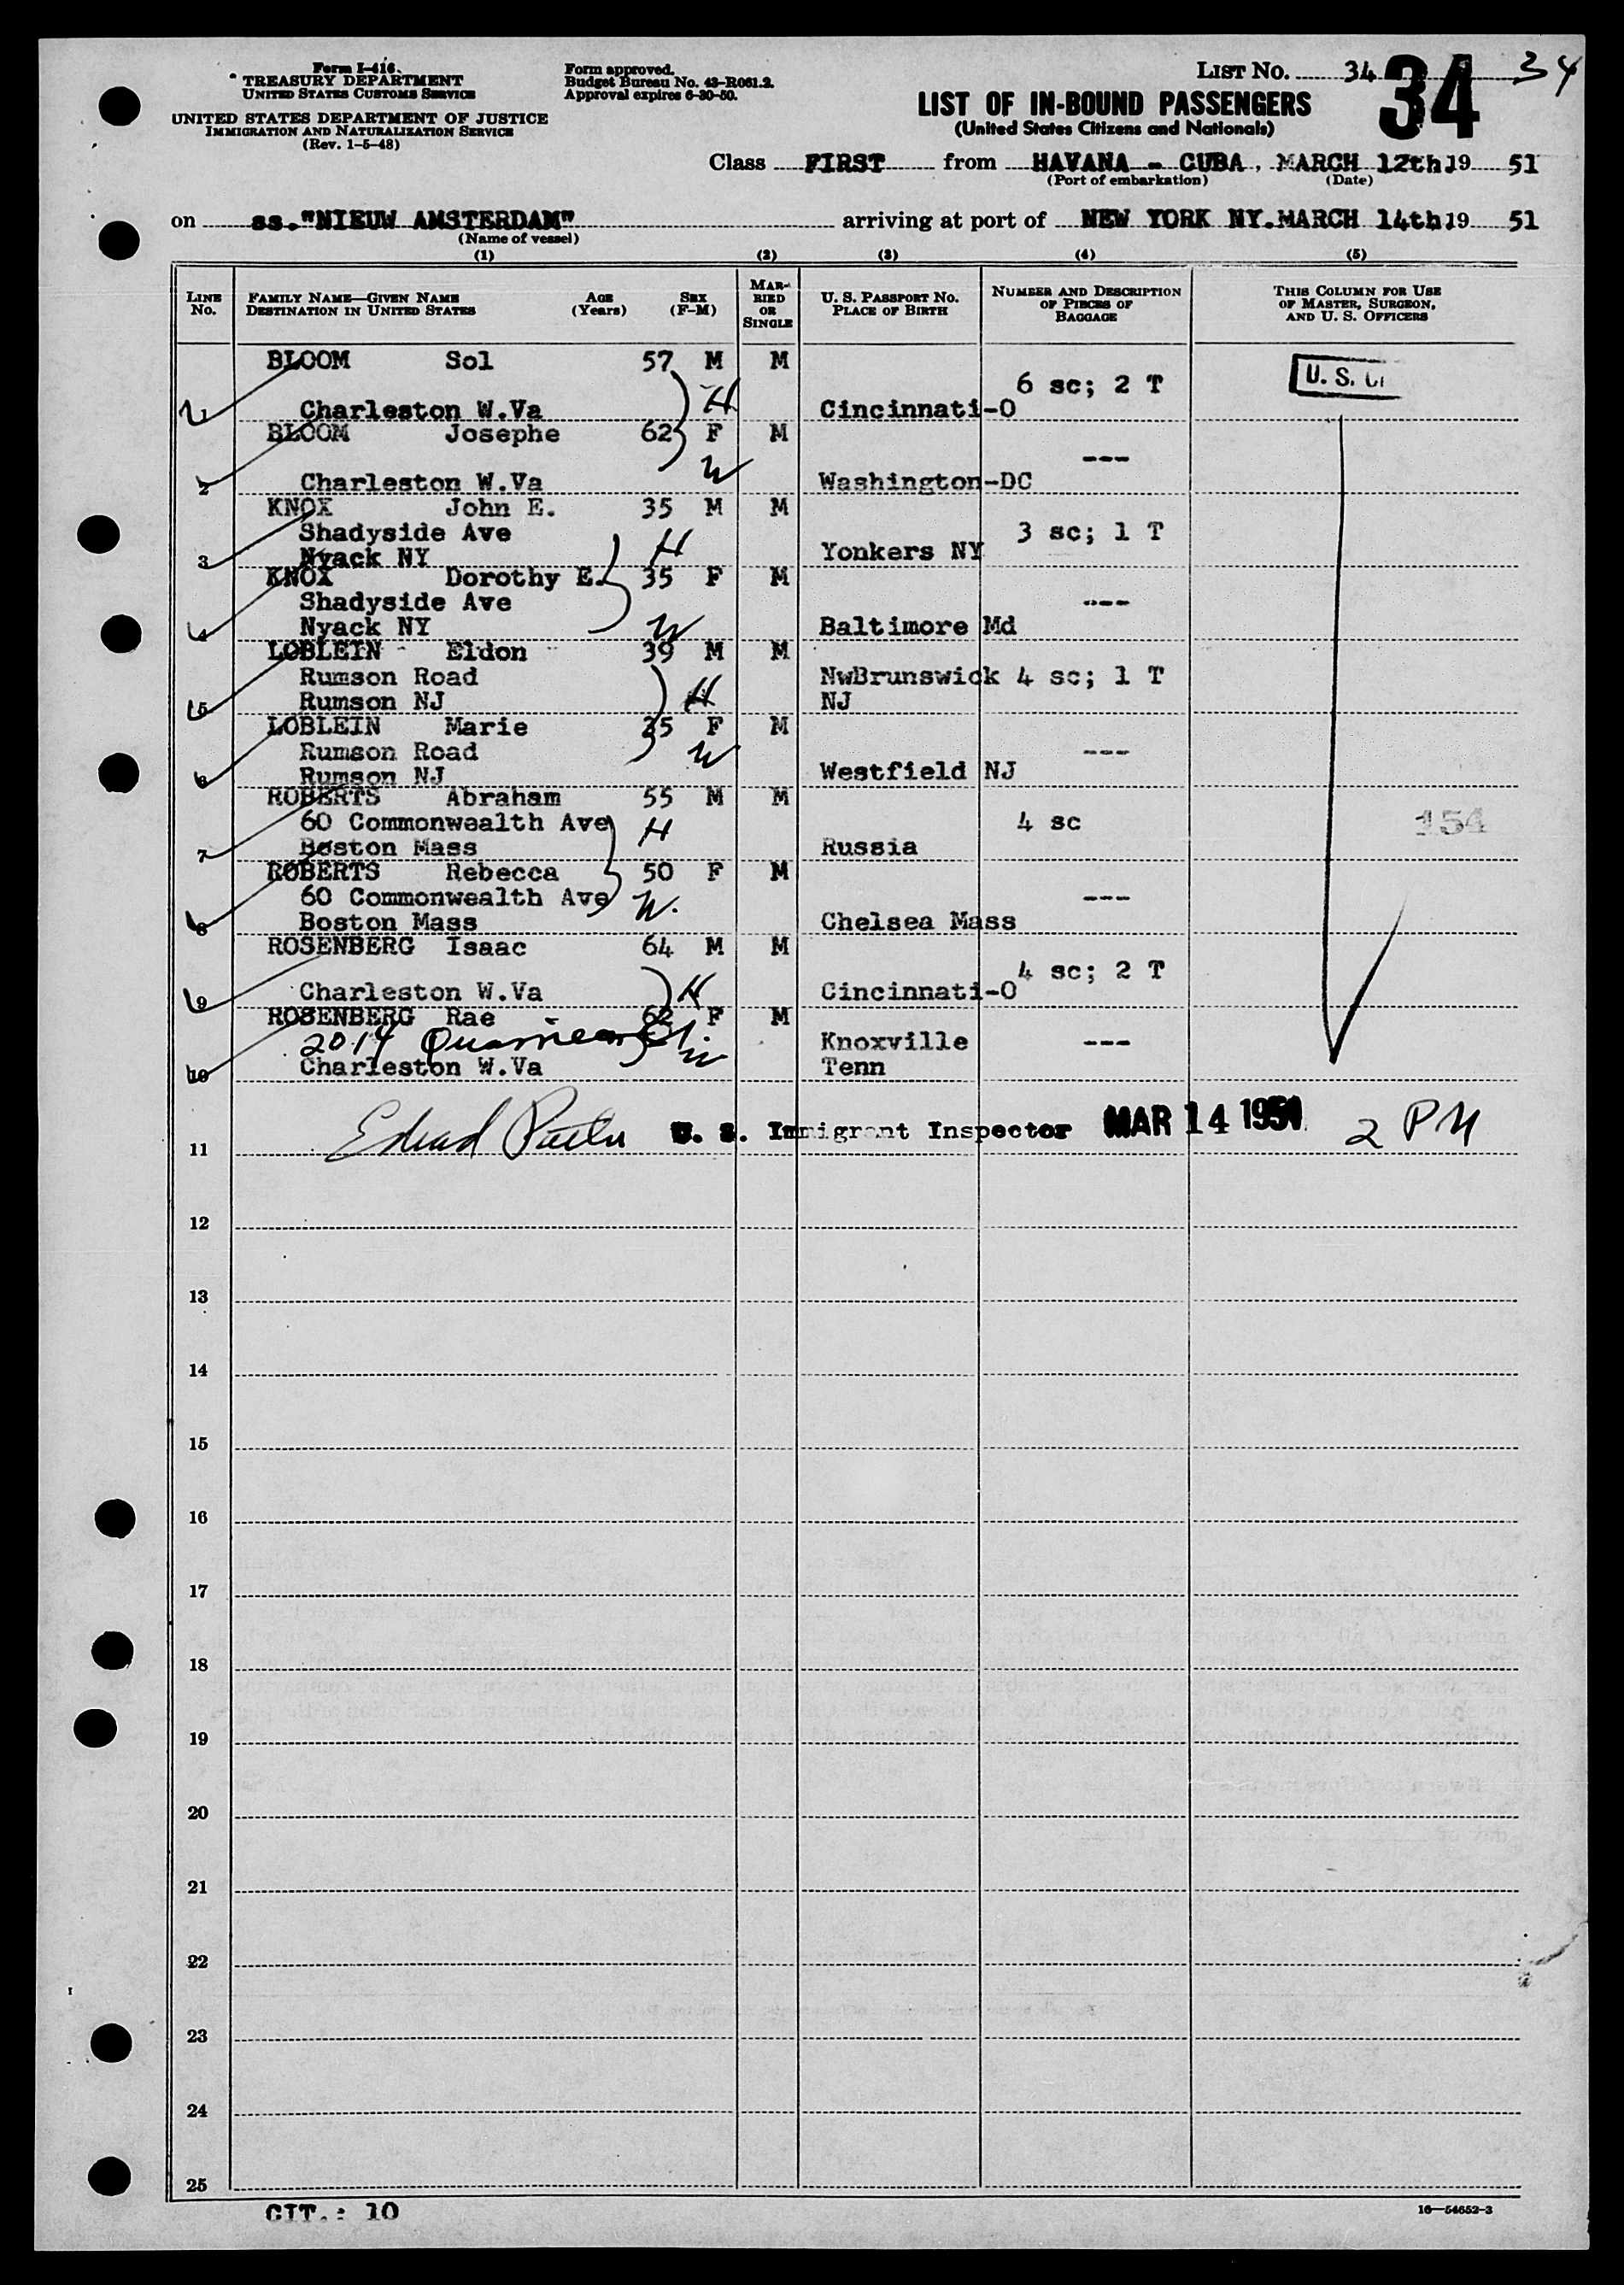 Form I-416.
TREASURY DEPARTMENT
UNITED STATES CUSTOMS SERVICE
UNITED STATES DEPARTMENT OF JUSTICE
IMMIGRATION AND NATURALIZATION SERVICE
(Rev. 1-5-48)
Form approved.
Budget Bureau No. 43-R061.2.
Approval expires 6-30-50.
LIST No. 34 34 34
LIST OF IN-BOUND PASSENGERS
(United States Citizens and Nationals)
Class FIRST from HAVANA - CUBA, MARCH 12th, 19 51
(Port of embarkation) (Date)
on ss. "NIEUW AMSTERDAM" arriving at port of NEW YORK NY. MARCH 14th, 19 51
(Name of vessel)
(1) (2) (3) (4) (5)
LINE No. FAMILY NAME—GIVEN NAME DESTINATION IN UNITED STATES AGE (Years) SEX (F-M) MARRIED OR SINGLE U. S. PASSPORT NO. PLACE OF BIRTH NUMBER AND DESCRIPTION OF PIECES OF BAGGAGE THIS COLUMN FOR USE OF MASTER, SURGEON, AND U. S. OFFICERS
BLOOM Sol 57 M M U. S.
H 6 sc; 2 T
1 Charleston W.Va Cincinnati-O
BLOOM Josephe 62 F M
W ---
2 Charleston W.Va Washington-DC
KNOX John E. 35 M M
Shadyside Ave 3 sc; 1 T
3 Nyack NY H Yonkers NY
KNOX Dorothy E. 35 F M
Shadyside Ave ---
4 Nyack NY W Baltimore Md
LOBLEIN Eldon 39 M M
Rumson Road NwBrunswick 4 sc; 1 T
5 Rumson NJ H NJ
LOBLEIN Marie 35 F M
Rumson Road W ---
6 Rumson NJ Westfield NJ
ROBERTS Abraham 55 M M
60 Commonwealth Ave H 4 sc 154
7 Boston Mass Russia
ROBERTS Rebecca 50 F M
60 Commonwealth Ave W. ---
8 Boston Mass Chelsea Mass
ROSENBERG Isaac 64 M M
4 sc; 2 T
9 Charleston W.Va H Cincinnati-O
ROSENBERG Rae 62 F M
2014 W Knoxville ---
10 Charleston W.Va Tenn
U. S. Immigrant Inspector MAR 14 1951 2 PM
11
12
13
14
15
16
17
18
19
20
21
22
23
24
25
CIT.: 10
16—54652-3